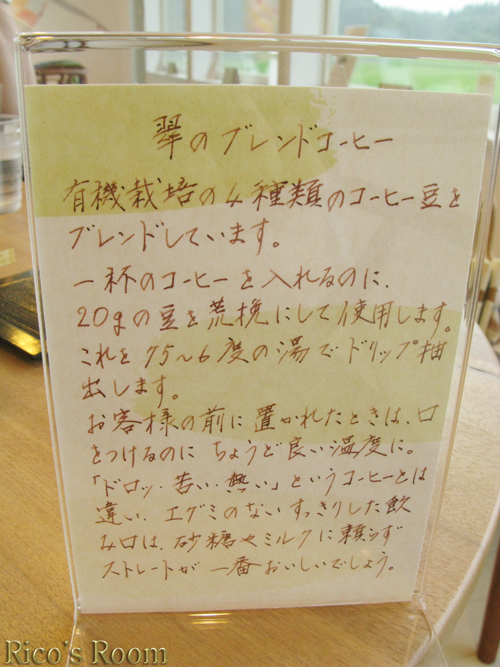 翠のブレンドコーヒー
有機栽培の4種類のコーヒー豆を
ブレンドしています。
一杯のコーヒーを入れるのに、
20gの豆を荒挽にして使用します。
これを75〜6度の湯でドリップ抽
出します。
お客様の前に置かれたときは、口
をつけるのにちょうど良い温度に。
「ドロッ・苦い・熱い」というコーヒーとは
違い、エグミのないすっきりした飲
み口は、砂糖やミルクに頼らず
ストレートが一番おいしいでしょう。
Rico's Room